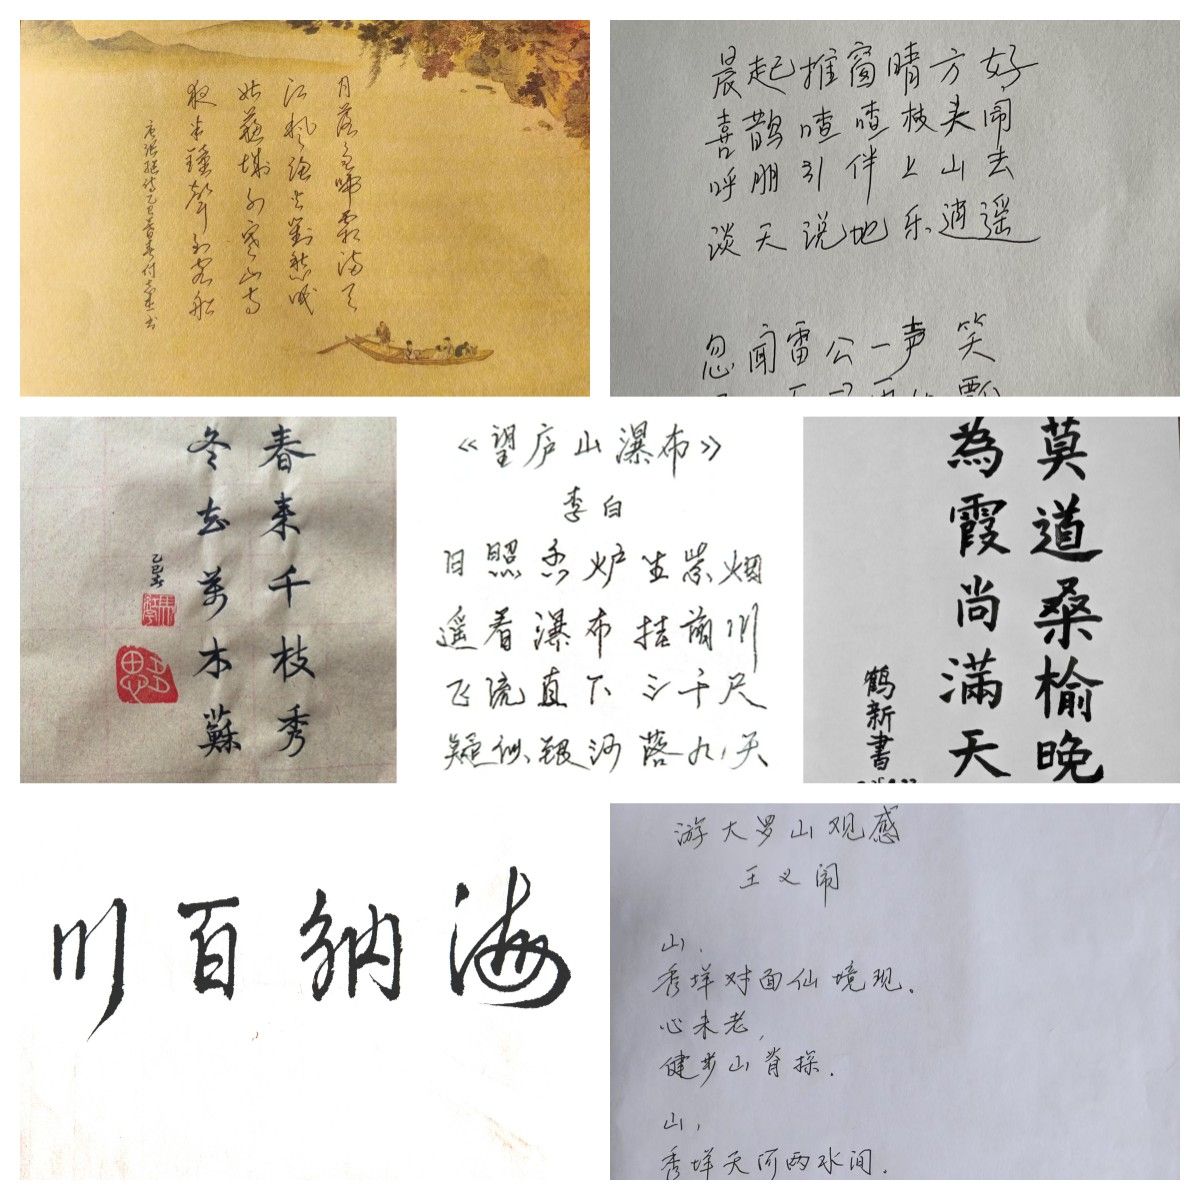 月落乌啼霜满天
江枫渔火對愁眠
姑蘇城外寒山寺
夜半鐘聲到客船
唐張继诗乙巳春
晨起推窗晴方好
喜鹊喳喳枝头闹
呼朋引伴上山去
谈天说地乐逍遥
忽闻雷公一声笑
春来千枝秀
冬去萬木蘇
乙巳春
《望庐山瀑布》
李白
日照香炉生紫烟
遥看瀑布挂前川
飞流直下三千尺
疑似银河落九天
莫道桑榆晚
為霞尚滿天
鹤新書
海纳百川
游大罗山观感
王义闹
山，
秀垟对面仙境现．
心未老，
健步山脊探．
山，
秀垟天河两水间．